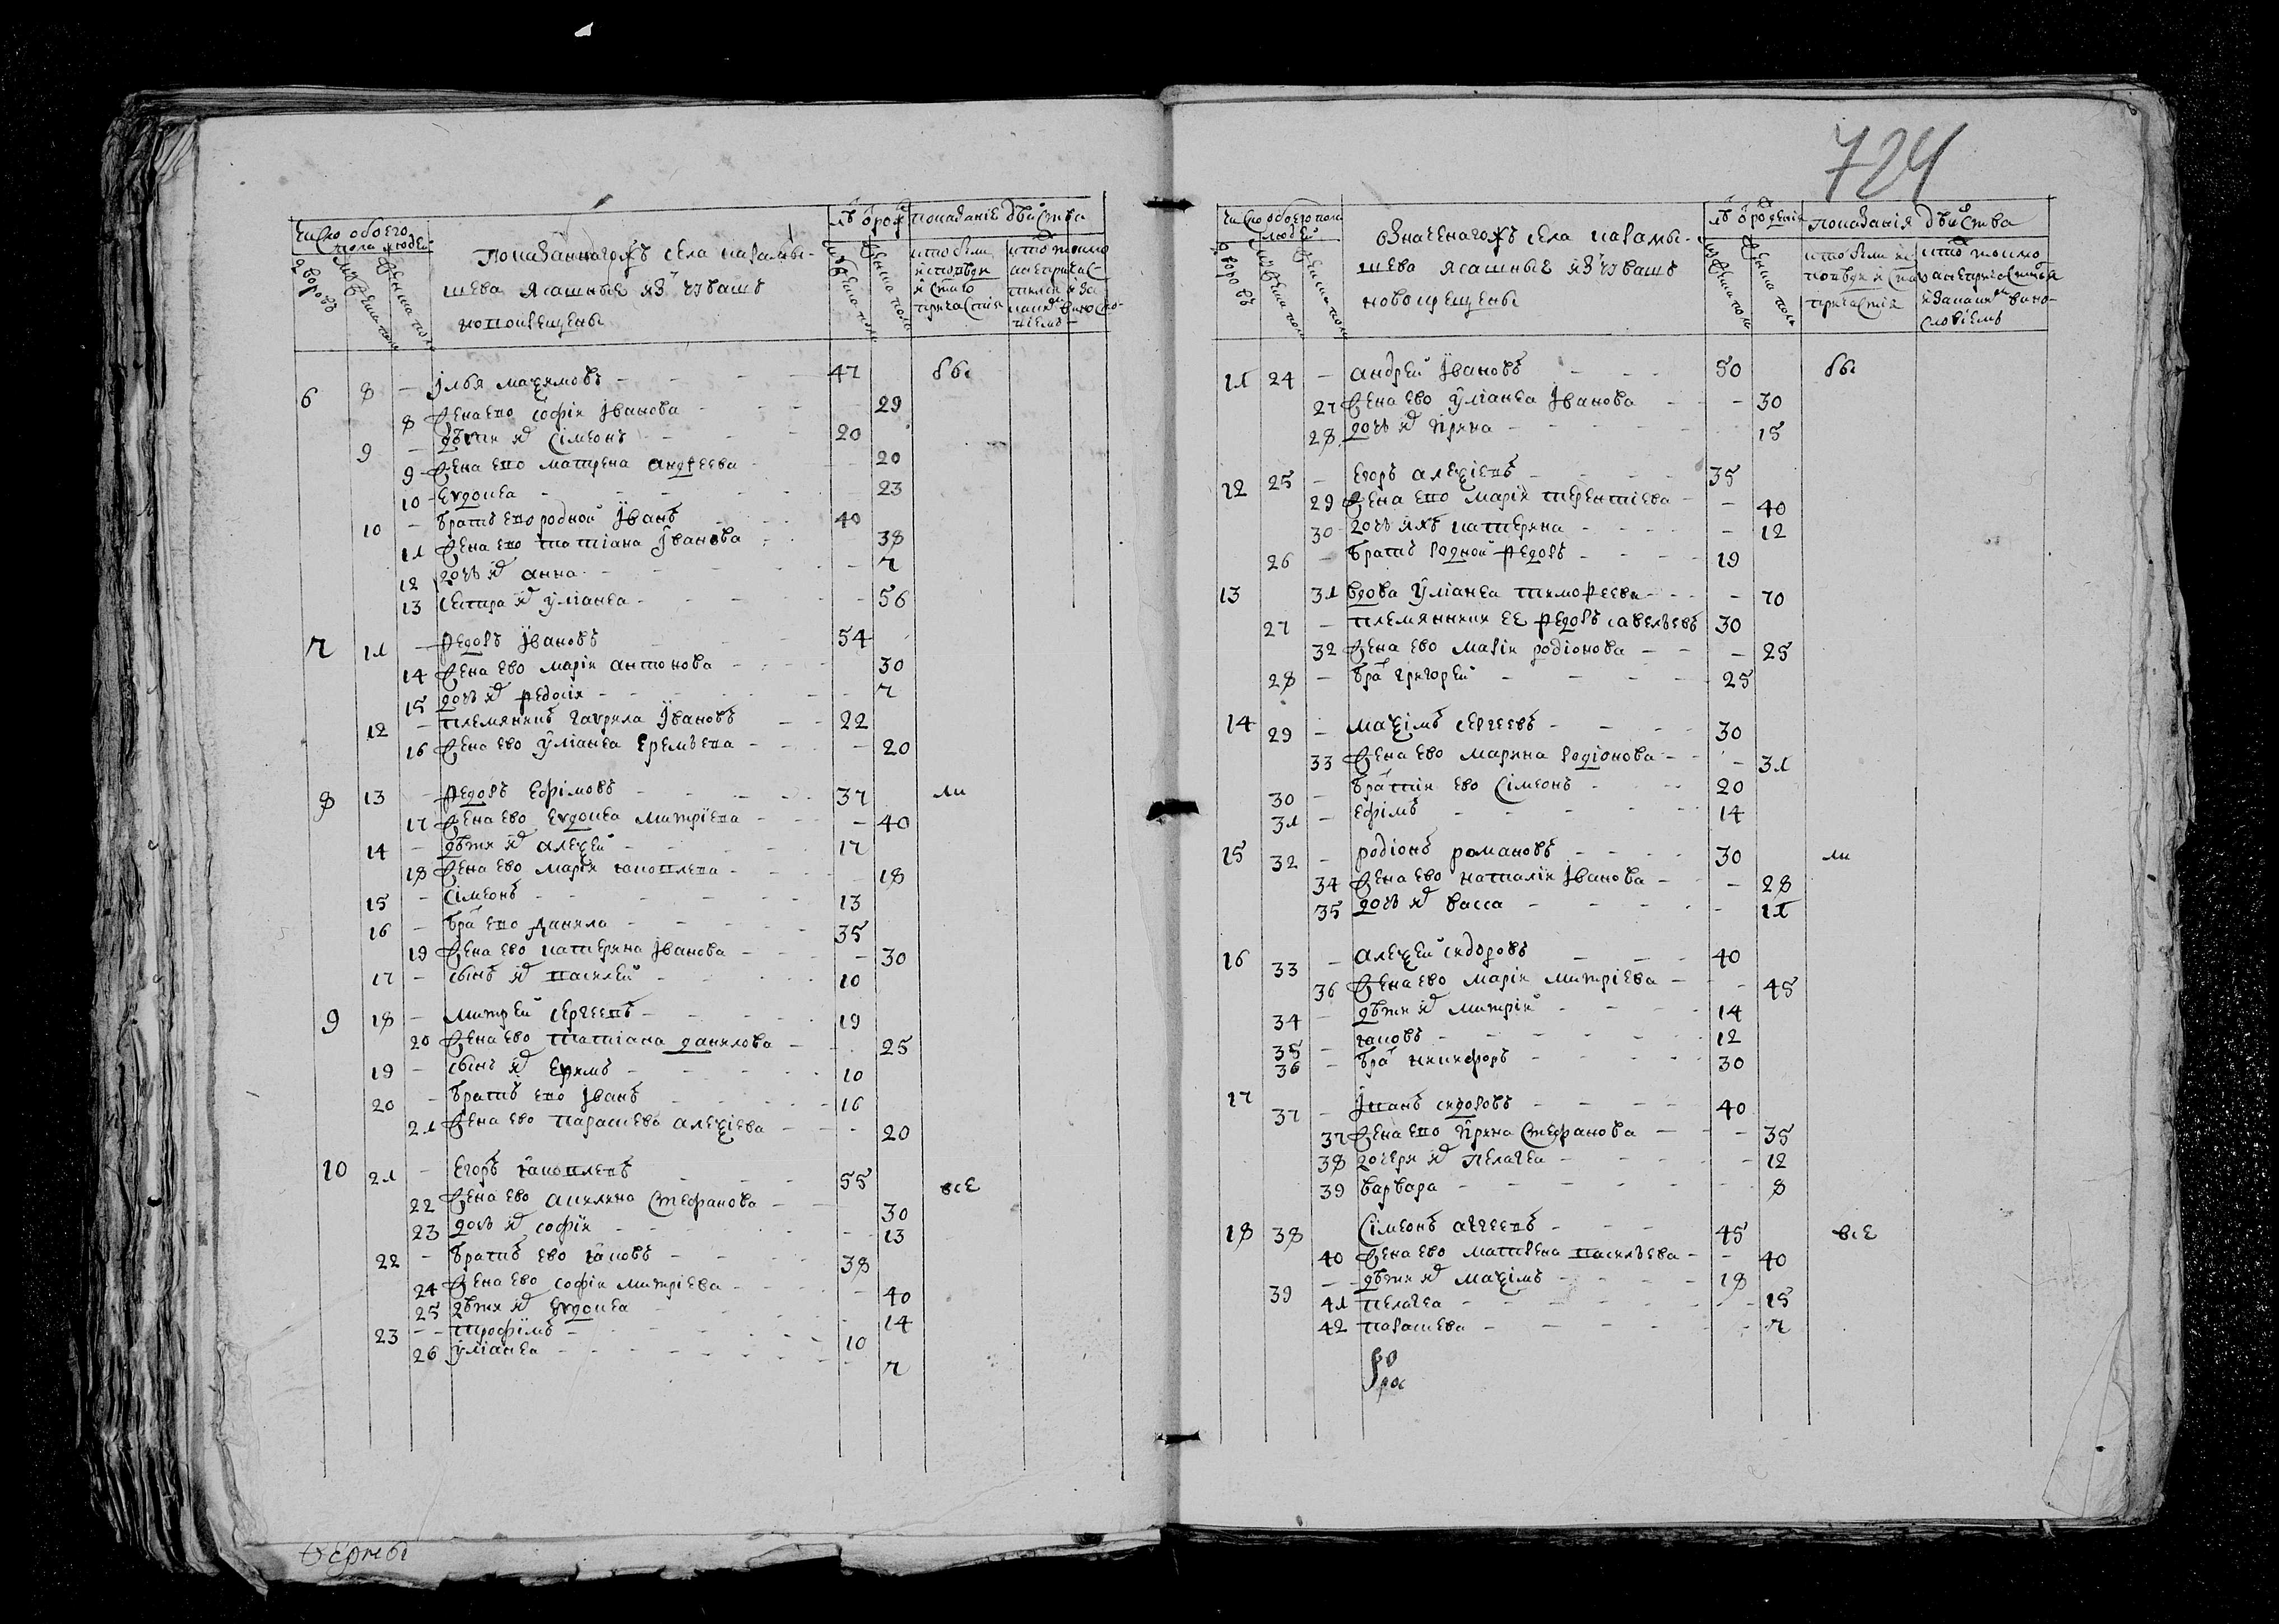 724
число обоего
пола людей
дворовъ
мужеска пола
женска пола
Показаннагожъ села карамы-
шева ясашные изъ чувашъ
новокрещены
лѣ ѿ рож
мужеска пола
женска пола
показаніе дѣйства
кто были
исповѣди
и с͠таго
причастия
6 8 - Ілья Маѯимовъ - 47 бы
8 жена ево Софія Іванова - 29
9 - дѣти их Сімеонъ - 20
9 жена ево Матрена Андреева - 20
10 Евдокея - 23
10 - братъ ево родной Іванъ - 40
11 жена ево Татіана Іванова - 38
12 дочь их Анна - 7
13 сестра их Уліанеа - 56
7 11 - Ѳедоръ Івановъ 54
14 жена ево Марія Антонова - 30
15 дочь их Ѳедосія - 7
12 - племянникъ Гаврила Івановъ - 22
16 жена ево Уліанеа Еремѣева - 20
8 13 - Ѳедоръ Ефімовъ - 37 ли
17 жена ево Евдокеа Митріева - 40
14 - дѣти их Алеѯей - 17
18 жена ево Марія Іаковлева - 18
15 - Сімеонъ - 13
16 - бра ево Данила - 35
19 жена ево Катерина Іванова - 30
17 - сынъ их Василей - 10
9 18 - Митрей Сергеевъ - 19
20 жена ево Татіана Данилова - 25
19 - сынъ их Ерямъ - 10
20 - братъ ево Іванъ - 16
21 жена ево Парасцева Алеѯіева - 20
10 21 - Егоръ Іаковлевъ 55 все
22 жена ево Акилина Стефанова - 30
23 дочь их Софія - 13
22 - братъ ево Іаковъ - 38
24 жена ево Софія Митріева - 40
25 дѣти их Евдокеа - 14
23 - Трофімъ - 10
26 Уліанеа - 7
число обоего пола
людей
дворовъ
мужеска пола
женска пола
Означенагожъ села карамы-
шева ясашные изъ чувашъ
новокрещены
лѣ ѿ рожденія
мужеска пола
женска пола
показанія дѣйства
кто были ис-
повѣди и с͠та
причастія
11 24 - Андрей Івановъ - 50 бы
27 жена ево Уліанеа Іванова - 30
28 дочь их Ірина - 15
12 25 - Егоръ Алеѯіевъ - 35
29 жена ево Марія Терентіева - 40
30 дочь ихъ Катерина - 12
26 - братъ родной Ѳедоръ - 19
13 31 вдова Уліанеа Тимоѳеева - 70
27 - племянникъ ее Ѳедоръ Савельевъ 30
32 жена ево Марія Родіонова - 25
28 - бра Григорей - 25
14 29 - Маѯімъ Сергеевъ - 30
33 жена ево Марина Родіонова - 31
30 - братия ево Сімеонъ - 20
31 - Ефімъ - 14
15 32 - Родіонъ Романовъ - 30 ли
34 жена ево Наталія Іванова - 28
35 дочь их Васса - 11
16 33 - Алеѯей Сидоровъ - 40
36 жена ево Марія Митріева - 45
34 - дѣти их Митрій - 14
35 - Іаковъ - 12
36 - бра Никифоръ - 30
17 37 - Іванъ Сидоровъ - 40
37 жена ево Ірина Стефанова - 35
38 дочери их Пелагеа - 12
39 Варвара - 8
18 38 Сімеонъ Агеевъ - 45 все
40 жена ево Матрена Васильева - 40
39 - дѣти их Маѯімъ - 18
41 Пелагеа - 15
42 Парасцева - 7